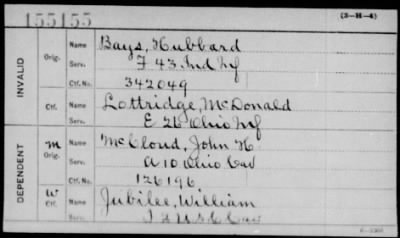 155155 (3-H-4)
INVALID
Orig. Name Bays, Hubbard
Serv. F 43 Ind Inf
Ctf. No. 342049
Ctf. Name Lottridge, McDonald
E 26 Ohio Inf
DEPENDENT
M Orig. Name McCloud, John H.
Serv. A 10 Ohio Cav
Ctf. No. 126196
W Ctf. Name Jubilee, William
Serv. Cav